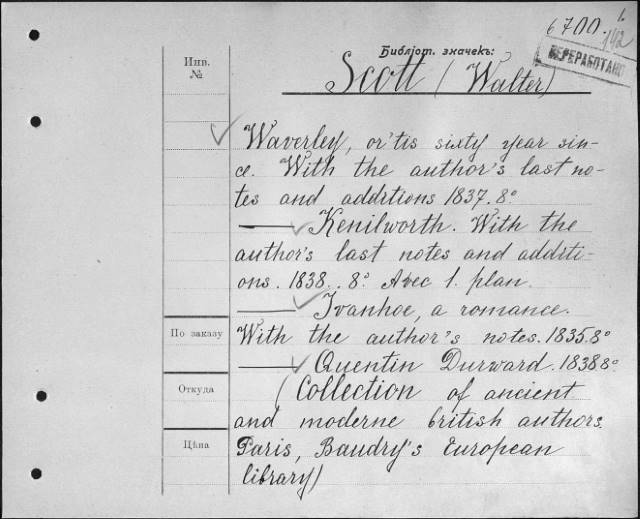 6700. 1.
142
ПЕРЕРАБОТАНО
Библіот. значекъ:
Инв.
№
Scott (Walter)
Waverley, or 'tis sixty year sin-
ce. With the author's last no-
tes and additions 1837. 8°
— Kenilworth. With the
author's last notes and additi-
ons. 1838. 8° Avec 1. plan.
— Ivanhoe, a romance.
With the author's notes. 1835. 8°
— Quentin Durward. 1838 8°
(Collection of ancient
and moderne british authors.
Paris, Baudry's European
library)
По заказу
Откуда
Цѣна